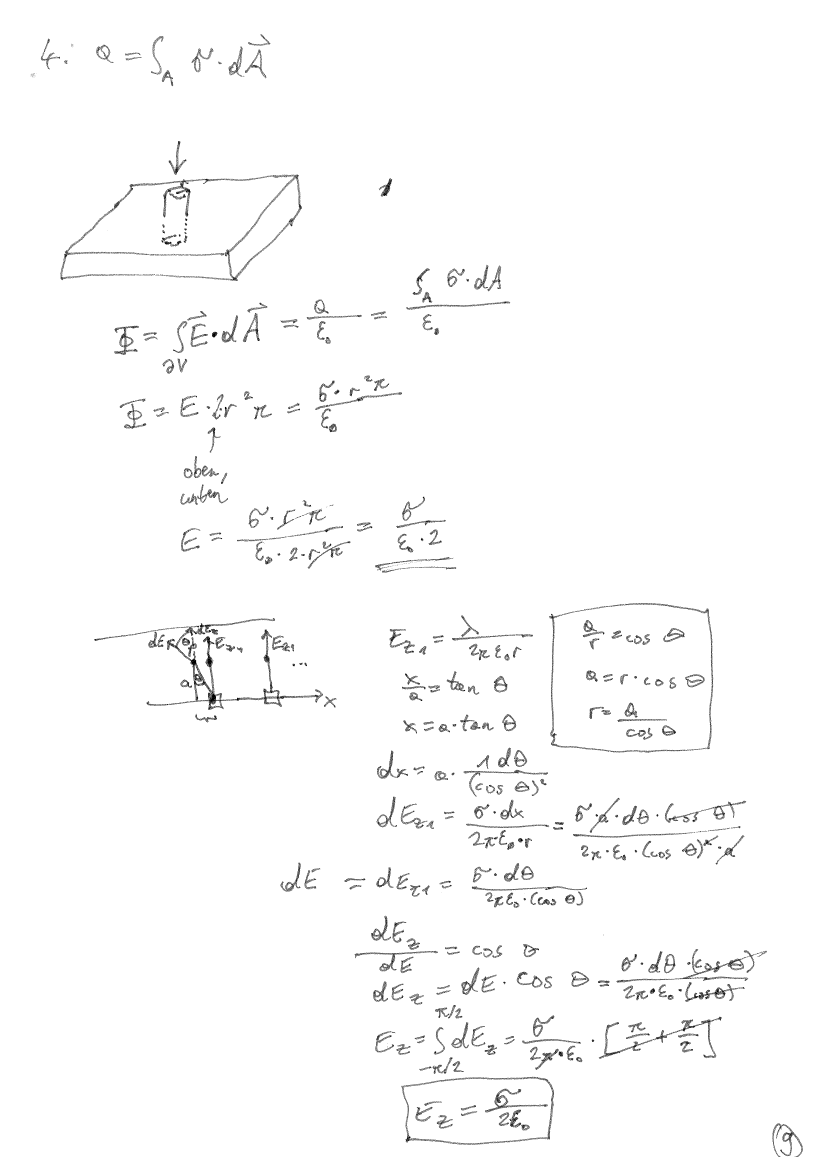 4. Q = ∫_A σ · dA⃗
Φ = ∫_∂V E⃗ · dA⃗ = Q/ε₀ = ∫_A σ · dA / ε₀
Φ = E · 2r²π = σ · r²π / ε₀
↑
oben,
unten
E = σ · r²π / (ε₀ · 2 · r²π) = σ / (ε₀ · 2)
dE θ dE_z E_z1 E_z1 ...
a θ x
E_z1 = λ / (2π ε₀ r)
x/a = tan θ
x = a · tan θ
a/r = cos θ
a = r · cos θ
r = a / cos θ
dx = a · 1 dθ / (cos θ)²
dE_z1 = σ · dx / (2π · ε₀ · r) = σ · a · dθ · (cos θ) / (2π · ε₀ · (cos θ)² · a)
dE = dE_z1 = σ · dθ / (2π ε₀ · (cos θ))
dE_z / dE = cos θ
dE_z = dE · cos θ = σ · dθ · (cos θ) / (2π · ε₀ · (cos θ))
E_z = ∫_{-π/2}^{π/2} dE_z = σ / (2π · ε₀) · [π/2 + π/2]
E_z = σ / 2ε₀
(9)